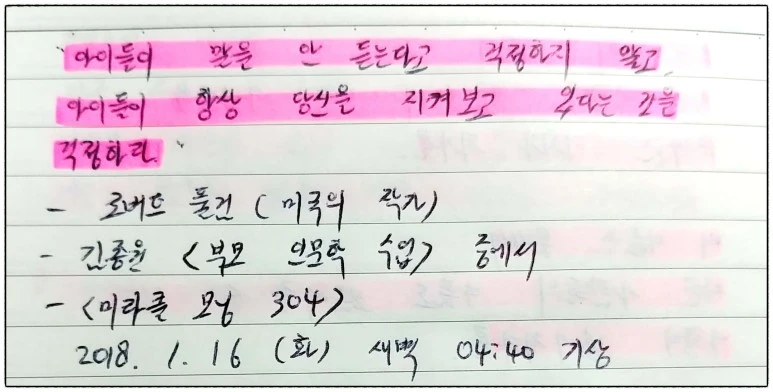 아이들이 말을 안 듣는다고 걱정하지 말고
아이들이 항상 당신을 지켜보고 있다는 것을
걱정하라.
- 로버트 풀검 (미국의 작가)
- 김종원 <부모 인문학 수업> 중에서
- <미라클 모닝 304>
2018. 1. 16 (화) 새벽 04:40 기상